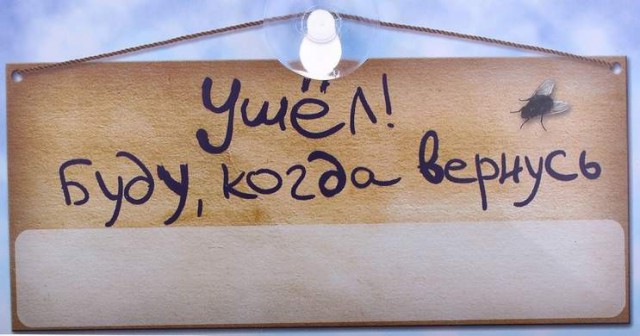 Ушёл!
Буду, когда вернусь